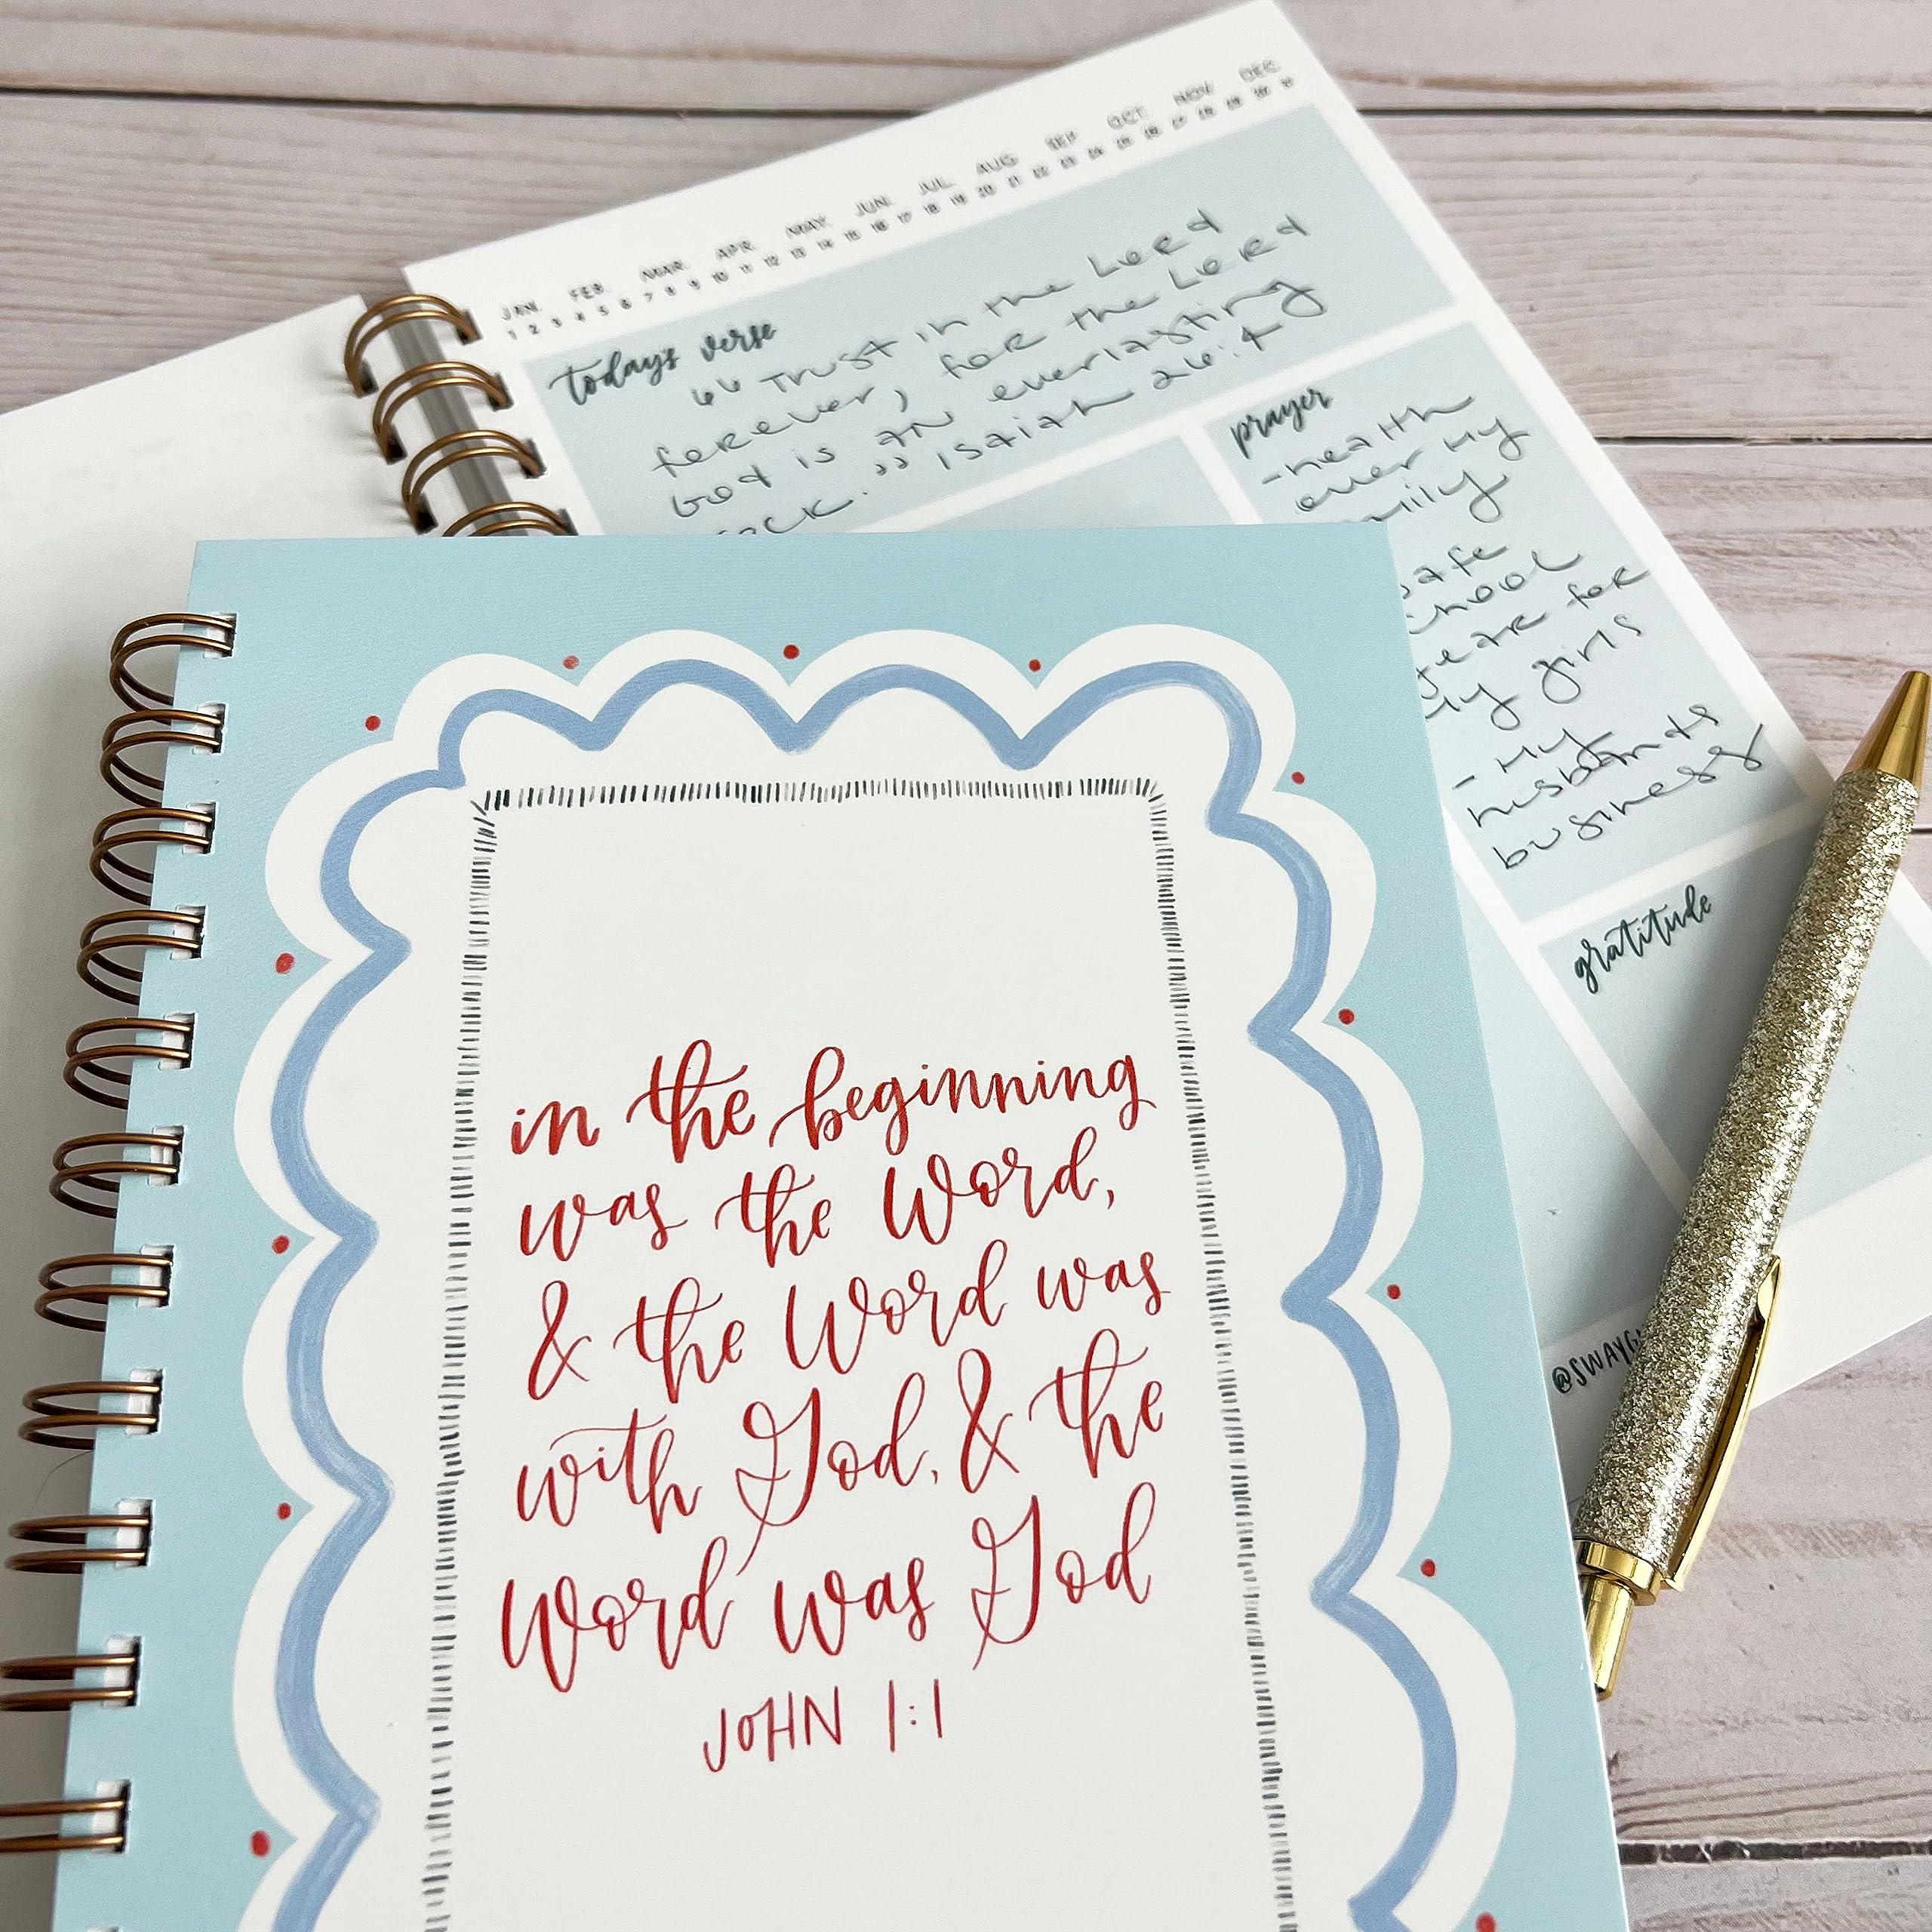 JAN. FEB. MAR. APR. MAY. JUN. JUL. AUG. SEP. OCT. NOV. DEC.
1 2 3 4 5 6 7 8 9 10 11 12 13 14 15 16 17 18 19 20 21 22 23 24 25 26 27 28 29 30 31
today's verse
“ Trust in the Lord
forever, for the Lord
God is an everlasting
rock. ” Isaiah 26:4
prayer
- health
over my
family
safe
school
year for
my girls
- my
husbands
business
gratitude
in the beginning
was the Word,
& the Word was
with God, & the
Word was God
JOHN 1:1